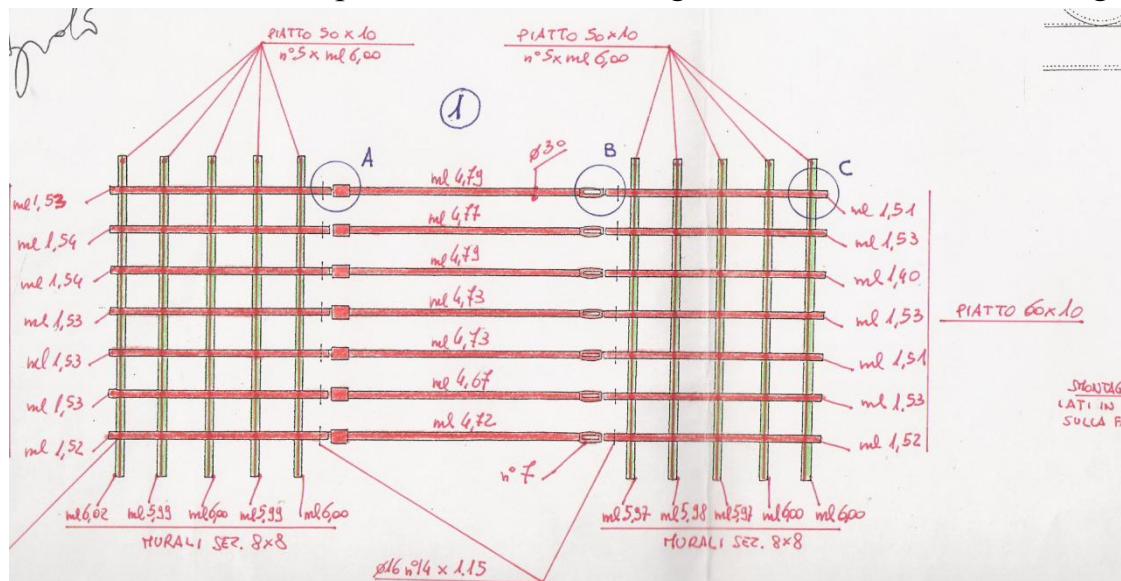 PIATTO 50x10
n°5x ml 6,00
PIATTO 50x10
n°5x ml 6,00
1
A
B
C
Ø30
ml 4,79
ml 4,77
ml 4,79
ml 4,73
ml 4,73
ml 4,67
ml 4,72
ml 1,53
ml 1,54
ml 1,54
ml 1,53
ml 1,53
ml 1,53
ml 1,52
ml 1,51
ml 1,53
ml 1,40
ml 1,53
ml 1,51
ml 1,53
ml 1,52
PIATTO 60x10
LATI IN
SULLA
n° 7
ml 6,02 ml 5,99 ml 6,00 ml 5,99 ml 6,00
MURALI SEZ. 8x8
ml 5,97 ml 5,98 ml 5,97 ml 6,00 ml 6,00
MURALI SEZ. 8x8
Ø16 n°14 x 1.15